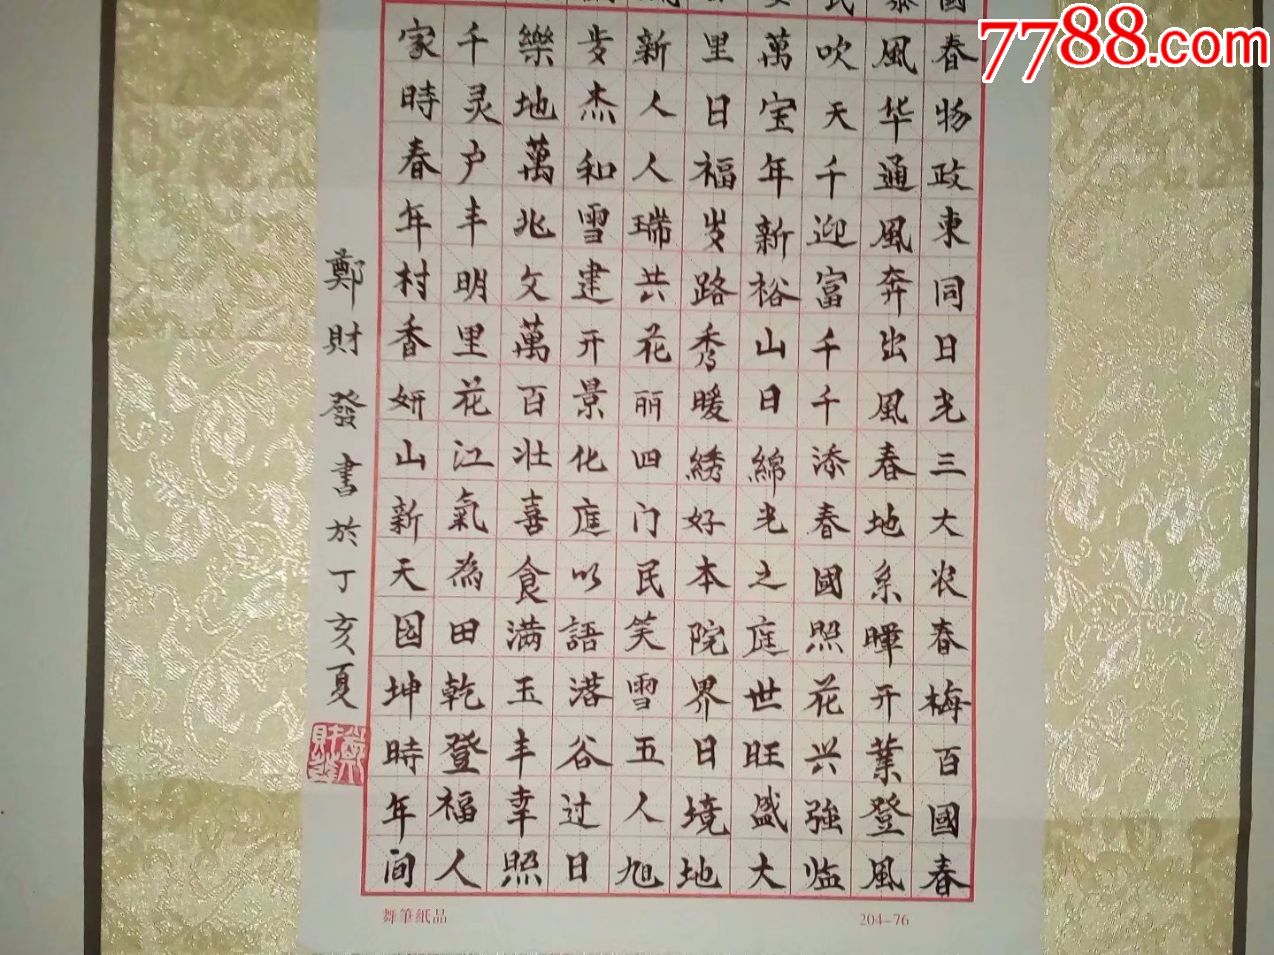 7788.com
春風吹萬里新步樂千家
物华天宝日人杰地灵時
政通千年福人和萬户春
東風迎新岁瑞雪兆丰年
同奔富裕路共建文明村
日出千山秀花开萬里香
光風千日暖丽景百花妍
三春添綿綉四化壮江山
大地春光好门庭喜氣新
农系國之本民以食為天
春暉照庭院笑語满田园
梅开花世界雪落玉乾坤
百業兴旺日五谷丰登時
國登強盛境人过幸福年
春風临大地旭日照人間
鄭財發書於丁亥夏
舞筆紙品
204-76